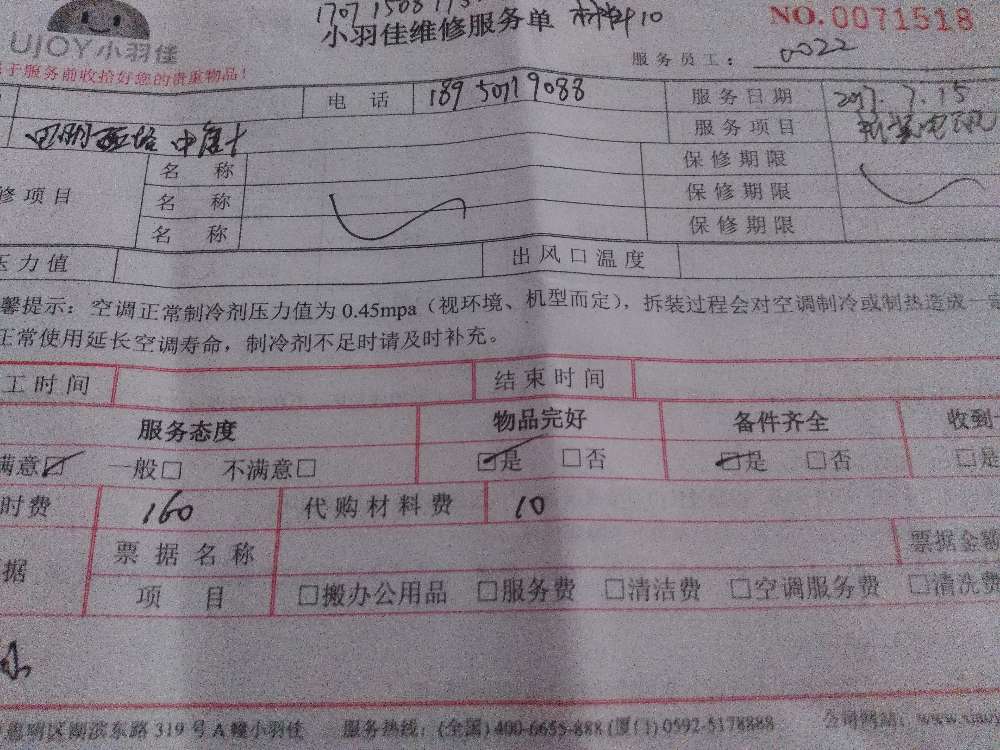 小羽佳维修服务单 材料10
NO.0071518
UJOY小羽佳
于服务前收拾好您的贵重物品!
服务员工: 0022
电话 服务日期 2017.7.15
服务项目
名称 保修期限
修项目 名称 保修期限
名称 保修期限
压力值 出风口温度
馨提示:空调正常制冷剂压力值为0.45mpa(视环境、机型而定),拆装过程会对空调制冷或制热造成一
正常使用延长空调寿命,制冷剂不足时请及时补充。
工时间 结束时间
服务态度 物品完好 备件齐全 收到
满意☑ 一般□ 不满意□ ☑是 □否 ☑是 □否 □是
时费 160 代购材料费 10
票据名称 票据金额
据 项目 □搬办公用品 □服务费 □清洁费 □空调服务费 □清洗费
东路319号A幢小羽佳 服务热线:(全国)400-6655-888(厦门)0592-5178888 公司网站: